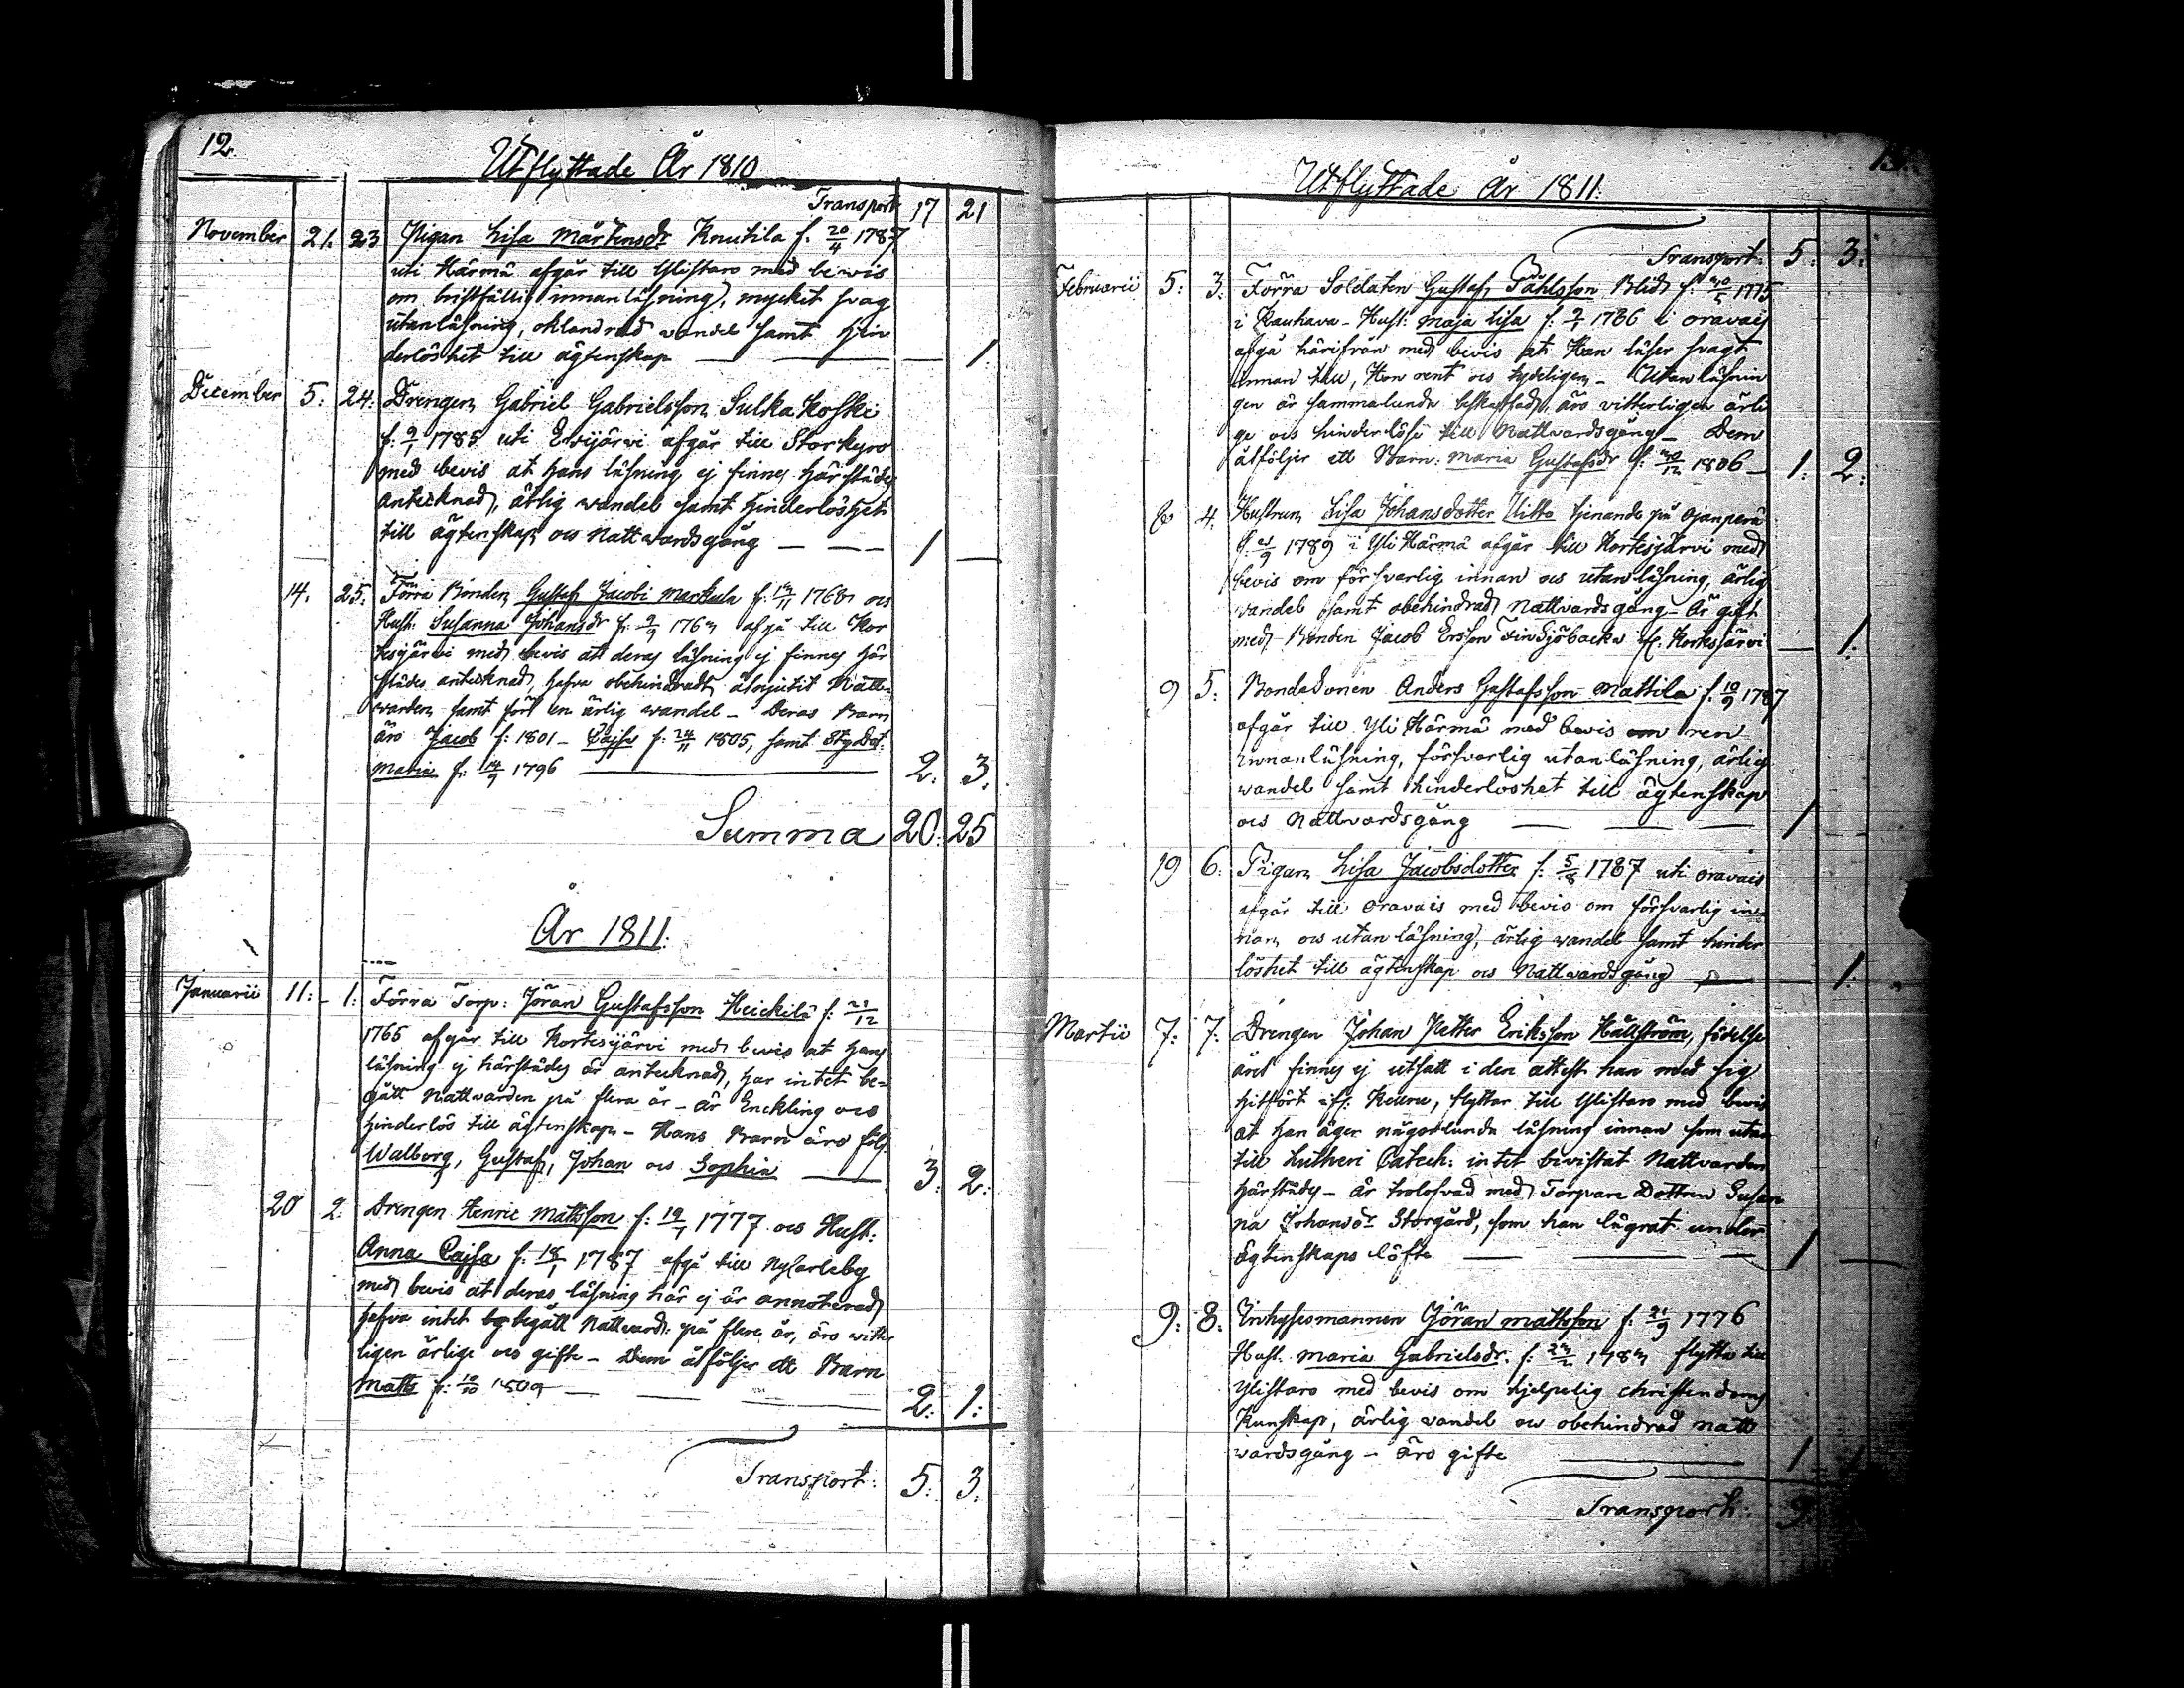 12.
Utflyttade År 1810
Transport 17 21
November 21. 23 Pigan Lisa Mårtensdr Knutila f. 20/4 1787
uti Härmä afgår till Ylistaro med bewis
om bristfällig innanläsning, mycket svag
utanläsning, oklandrad wandel samt hin
derlöshet till ägtenskap — — 1.
December 5: 24: Drengen Gabriel Gabrielsson Sulkakoski
f: 9/1 1785 uti Ewijärwi afgår till Storkyro
med bevis at hans läsning ej finnes härstädes
antecknad, ärlig wandel samt hinderlöshet
till ägtenskap och Nattwardsgång — — 1 —
14. 25: Förra Bonden Gustaf Jacobi Markula f: 1768 och
Hust: Susanna Johansdr f: 9/9 afgå till Kor
tesjärvi med bevis att deras läsning ej finnes här
städes antecknad, hafva obehindradt åtnjutit Natt-
warden samt fört en ärlig wandel – Deras Barn
äro Jacob f: 1801 – Cajsa f: 24/11 1805, samt StyfDot:
Maria f: 14/9 1796 — 2: 3.
Summa 20: 25
År 1811:
Januarii 11: – 1: Förra Torp: Jöran Gustafsson Heickilä f: 21/12
1765 afgår till Kortesjärvi med bevis at hans
läsning ej härstädes är antecknad, har intet be-
gått Nattwarden på flera år – är Enckling och
hinderlös till ägtenskap – Hans Barn äro följ:
Walborg, Gustaf, Johan och Sophia — 3: 2:
20 2: Drengen Henric Mattsson f: 19/1 1777 och Hust:
Anna Cajsa f: 18/1 1787 afgå till NyCarleby
med bevis at deras läsning här ej är annoterad,
hafva intet begått Nattvard: på flere år, äro witter
ligen ärlige och gifte – Dem åtföljer ett Barn
Matts f: 1809 — 2: 1:
Transport: 5: 3:
13.
Utflyttade År 1811:
Transport: 5: 3:
Februarii 5: 3: Förra Soldaten Gustaf Påhlsson Blid f: 1775
i Kauhava – Hust: Maja Lisa f: 9/1 1786 i Oravais
afgå härifrån med bevis at Han läser svagt
innan till, Hon rent och tydeligen – Utanläsnin
gen är sammalunda beskaffad, äro vitterligen ärli
ge och hinderlöse till Nattvardsgång – Dem
åtföljer ett Barn: Maria Gustafsdr f: 1806 – 1: 2:
4: Hustrun Lisa Johansdotter Uitto tjenande på Ojanperä
f: 21/9 1789 i Yli Härmä afgår till Kortesjärvi med
bevis om försvarlig innan och utanläsning, ärlig
wandel samt obehindrad Nattvardsgång – Är gift
med Bonden Jacob Ersson FinSjöbacka Kortesjärvi — 1.
9 5: BondeSonen Anders Gustafsson Mattila f: 10/9 1787
afgår till Yli Härmä med bevis om ren
innanläsning, försvarlig utanläsning, ärlig
wandel samt hinderlöshet till ägtenskap
och Nattvardsgång — — — 1 —
19 6: Pigan Lisa Jacobsdotter f: 5/8 1787 uti Oravais
afgår till Oravais med bevis om försvarlig in-
nan och utanläsning, ärlig wandel samt hinder
löshet till ägtenskap och Nattwardsgång — — 1.
Martii 7: 7: Drengen Johan Petter Eriksson Hällström, födelse
året finnes ej utsatt i den attest han med sig
hitfört, flyttar till Ylistaro med bevis
at han äger någorlunda läsning innan som utan
till Lutheri Catech: intet bivistat Nattvarden
härstädes – är trolofvad med Torpare Dottren Susan
na Johansdr Storgård, som han lägrat under
ägtenskaps löfte — — — 1 —
9: 8: Inhysesmannen Jöran Mattsson f: 21/9 1776
Hust. Maria Gabrielsdr. f: flytta till
Ylistaro med bevis om hjelpelig christendoms
Kunskap, ärlig wandel och obehindrad natt
wardsgång – äro gifte — 1
Transport: 9